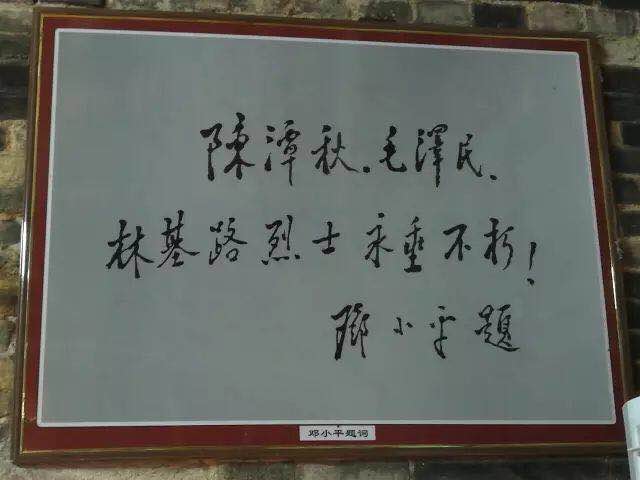 陳潭秋、毛澤民、
林基路烈士永垂不朽!
鄧小平題
邓小平题词